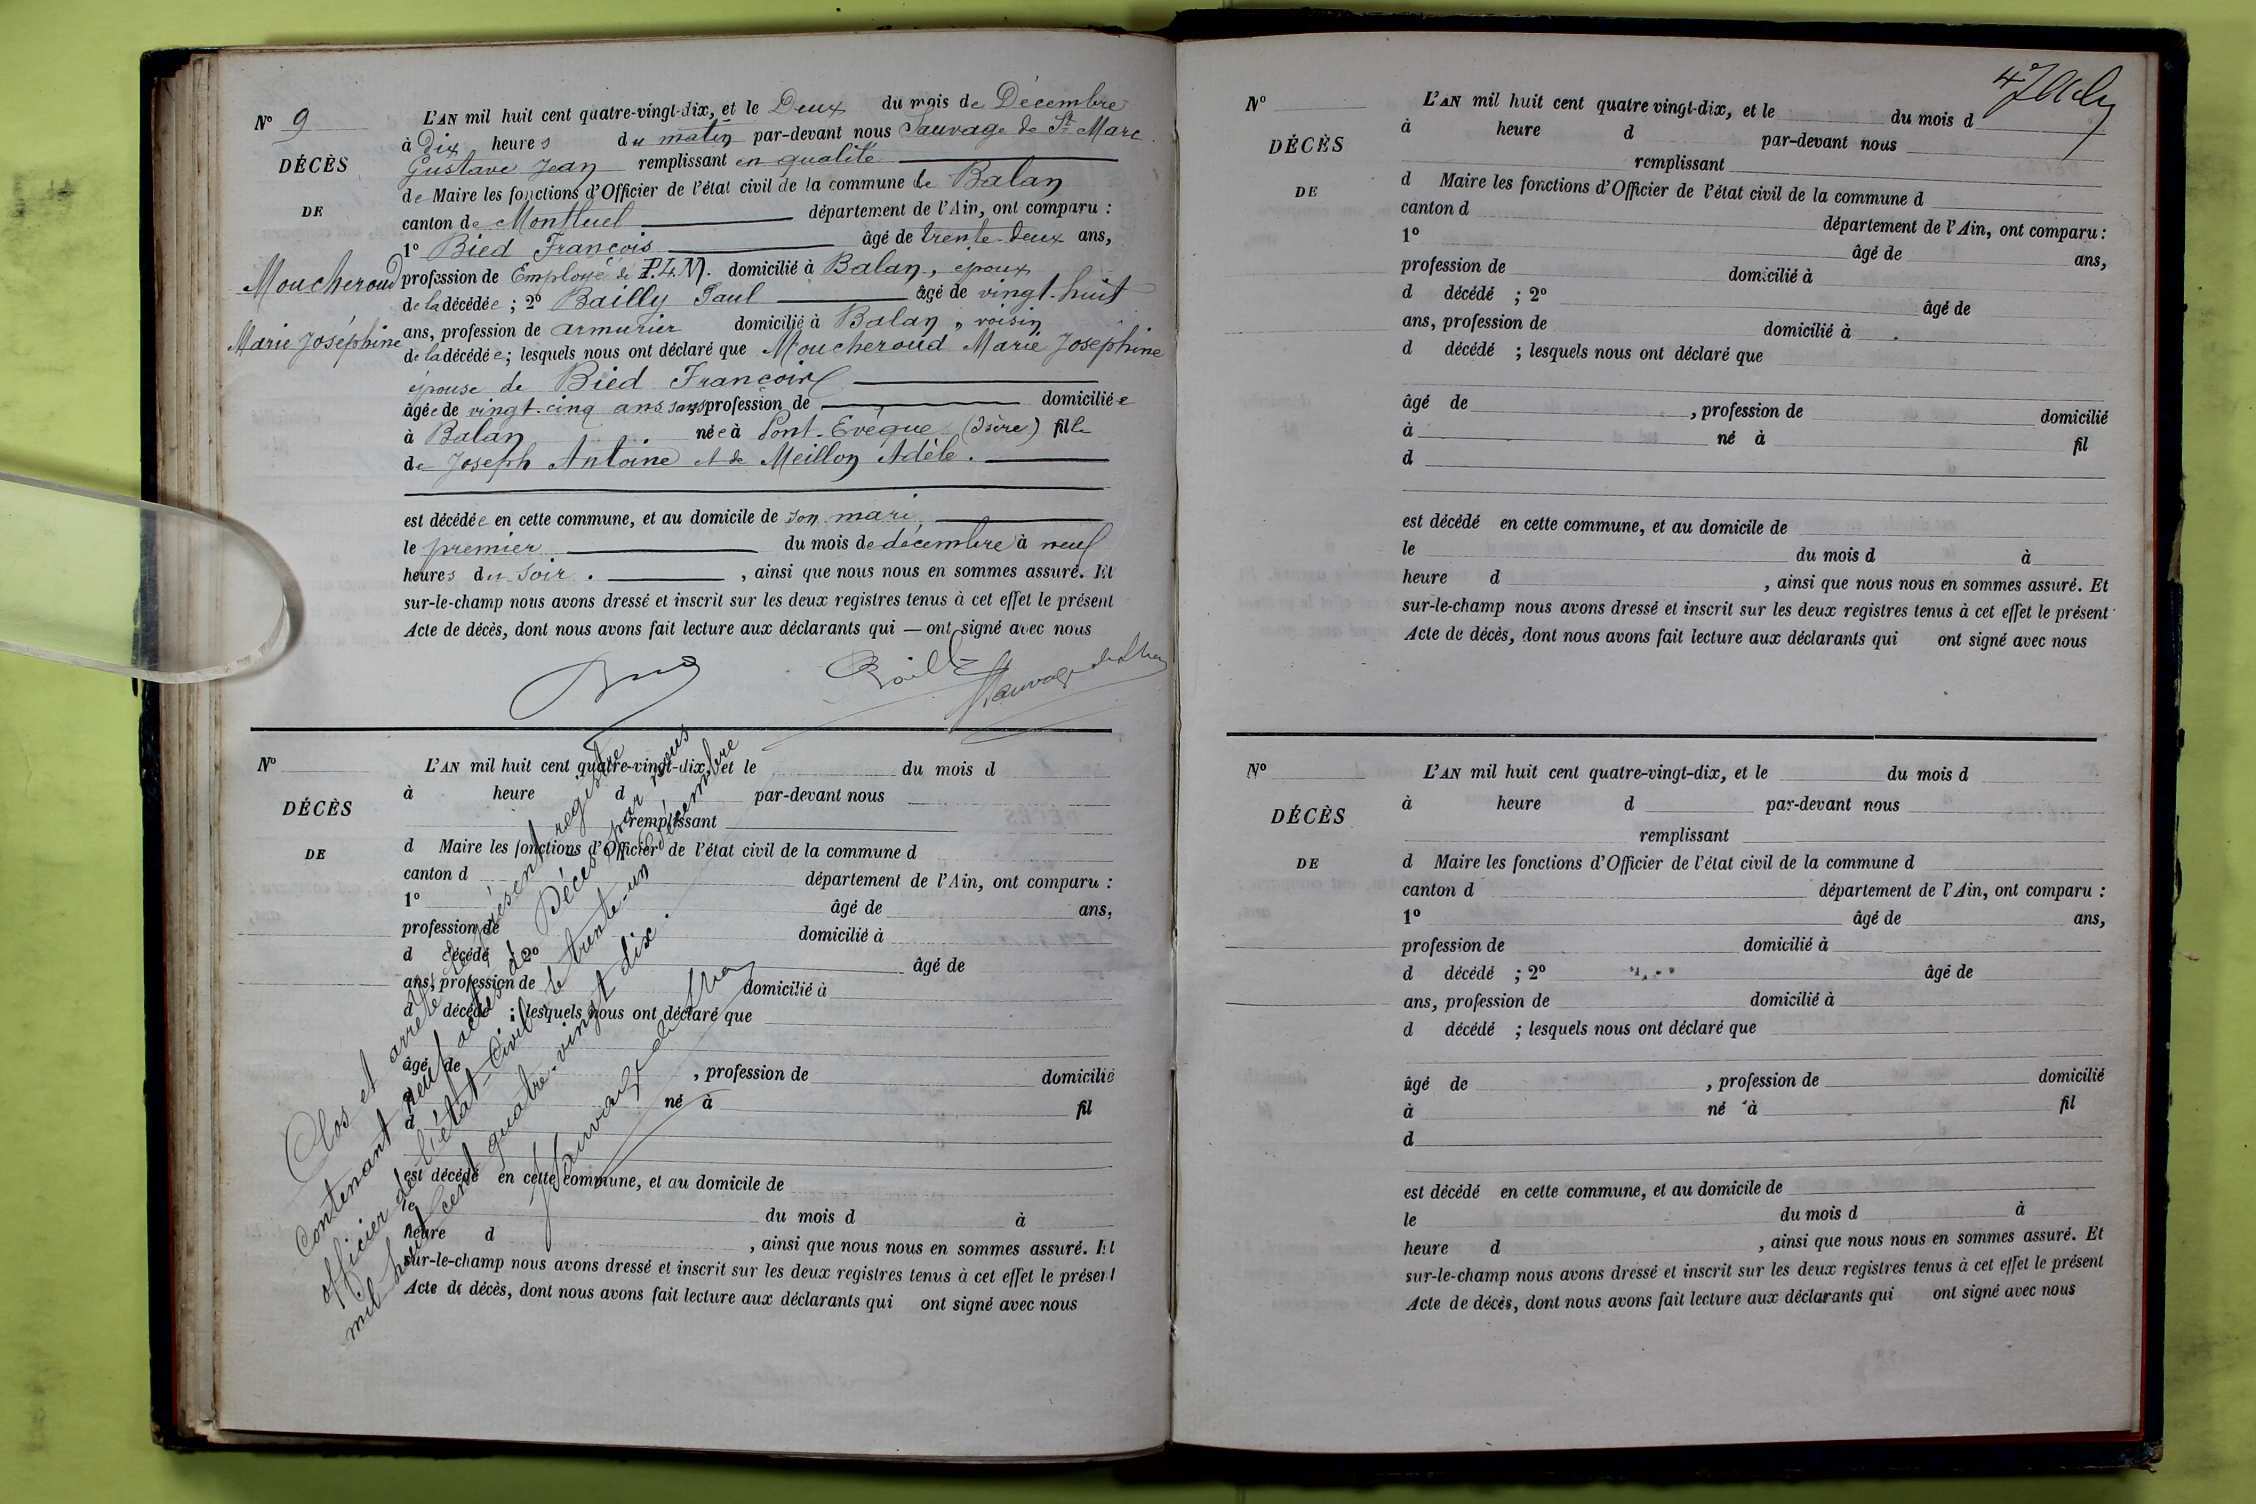 N° 9
DÉCÈS
DE
Moucheroud
Marie Joséphine
L'AN mil huit cent quatre-vingt-dix, et le Deux du mois de Décembre
à Dix heures du matin par-devant nous Sauvage de St Marc
Gustave Jean remplissant en qualité
de Maire les fonctions d'Officier de l'état civil de la commune de Balan
canton de Montluel département de l'Ain, ont comparu :
1° Bied François âgé de trente-deux ans,
profession de Employé de P.L.M. domicilié à Balan, époux
de la décédée ; 2° Bailly Paul âgé de vingt-huit
ans, profession de armurier domicilié à Balan, voisin
de la décédée ; lesquels nous ont déclaré que Moucheroud Marie Joséphine
épouse de Bied François
âgée de vingt-cinq ans sans profession de domiciliée
à Balan née à Pont-Evêque (Isère) fille
de Joseph Antoine et de Meillon Adèle.
est décédée en cette commune, et au domicile de son mari
le premier du mois de décembre à neuf
heures du soir. , ainsi que nous nous en sommes assuré. Et
sur-le-champ nous avons dressé et inscrit sur les deux registres tenus à cet effet le présent
Acte de décès, dont nous avons fait lecture aux déclarants qui — ont signé avec nous
Bailly
N°
DÉCÈS
DE
L'AN mil huit cent quatre-vingt-dix, et le du mois d
à heure d par-devant nous
remplissant
d Maire les fonctions d'Officier de l'état civil de la commune d
canton d département de l'Ain, ont comparu :
1° âgé de ans,
profession de domicilié à
d décédé ; 2° âgé de
ans, profession de domicilié à
d décédé ; lesquels nous ont déclaré que
âgé de , profession de domicilié
à né à fil
d
est décédé en cette commune, et au domicile de
le du mois d à
heure d , ainsi que nous nous en sommes assuré. Et
sur-le-champ nous avons dressé et inscrit sur les deux registres tenus à cet effet le présent
Acte de décès, dont nous avons fait lecture aux déclarants qui ont signé avec nous
Clos et arrêté le présent registre
contenant neuf actes de Décès par nous
officier de l'état-civil le trente-un décembre
mil-huit cent quatre-vingt dix.
N°
DÉCÈS
DE
L'AN mil huit cent quatre vingt-dix, et le du mois d
à heure d par-devant nous
remplissant
d Maire les fonctions d'Officier de l'état civil de la commune d
canton d département de l'Ain, ont comparu :
1° âgé de ans,
profession de domicilié à
d décédé ; 2° âgé de
ans, profession de domicilié à
d décédé ; lesquels nous ont déclaré que
âgé de , profession de domicilié
à né à fil
d
est décédé en cette commune, et au domicile de
le du mois d à
heure d , ainsi que nous nous en sommes assuré. Et
sur-le-champ nous avons dressé et inscrit sur les deux registres tenus à cet effet le présent
Acte de décès, dont nous avons fait lecture aux déclarants qui ont signé avec nous
N°
DÉCÈS
DE
L'AN mil huit cent quatre-vingt-dix, et le du mois d
à heure d par-devant nous
remplissant
d Maire les fonctions d'Officier de l'état civil de la commune d
canton d département de l'Ain, ont comparu :
1° âgé de ans,
profession de domicilié à
d décédé ; 2° âgé de
ans, profession de domicilié à
d décédé ; lesquels nous ont déclaré que
âgé de , profession de domicilié
à né à fil
d
est décédé en cette commune, et au domicile de
le du mois d à
heure d , ainsi que nous nous en sommes assuré. Et
sur-le-champ nous avons dressé et inscrit sur les deux registres tenus à cet effet le présent
Acte de décès, dont nous avons fait lecture aux déclarants qui ont signé avec nous